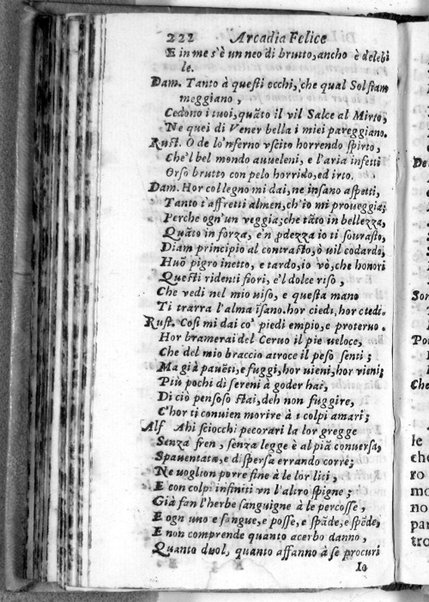 222 Arcadia Felice
E in me s'è un neo di brutto, ancho è delebi
le.
Dam. Tanto à questi occhi, che qual Sol fiam
meggiano,
Cedono i tuoi, quãto il vil Salce al Mirto,
Ne quei di Vener bella i miei pareggiano.
Rust. O de lo'nferno vscito horrendo spirto,
Che'l bel mondo auueleni, e l'aria infetti
Orso brutto con pelo horrido, ed irto.
Dam. Hor col legno mi dai, ne insano aspetti,
Tanto t'affretti almen, ch'io mi proueggia;
Perche ogn'un veggia; che tãto in bellezza,
Quãto in forza, e'n ꝓdezza io ti sourasto,
Diam principio al contrasto, ò uil codardo,
Huõ pigro inetto, e tardo, io vò, che honori
Questi ridenti fiori, e'l dolce riso,
Che vedi nel mio uiso, e questa mano
Ti trarra l'alma isano. hor ciedi, hor ciedi.
Rust. Cosi mi dai co' piedi empio, e proteruo.
Hor bramerai del Ceruo il pie ueloce,
Che del mio braccio atroce il peso senti;
Ma già pauẽti, e fuggi, hor uieni, hor vieni;
Più pochi dì sereni à goder hai,
Di ciò pensoso stai, deh non fuggire,
C'hor ti conuien morire à i colpi amari;
Alf Ahi sciocchi pecorari la lor gregge
Senza fren, senza legge è al piã conuersa,
Spauentata, e dispersa errando corre;
Ne uoglion porre fine à le lor liti,
E con colpi infiniti vn l'altro spigne;
Già fan l'herbe sanguigne à le percosse,
E ogn uno e fangue, e posse, e spãde, e spãde,
E non comprende quanto acerbo danno,
Quanto duol, quanto affanno à se procuri
Io